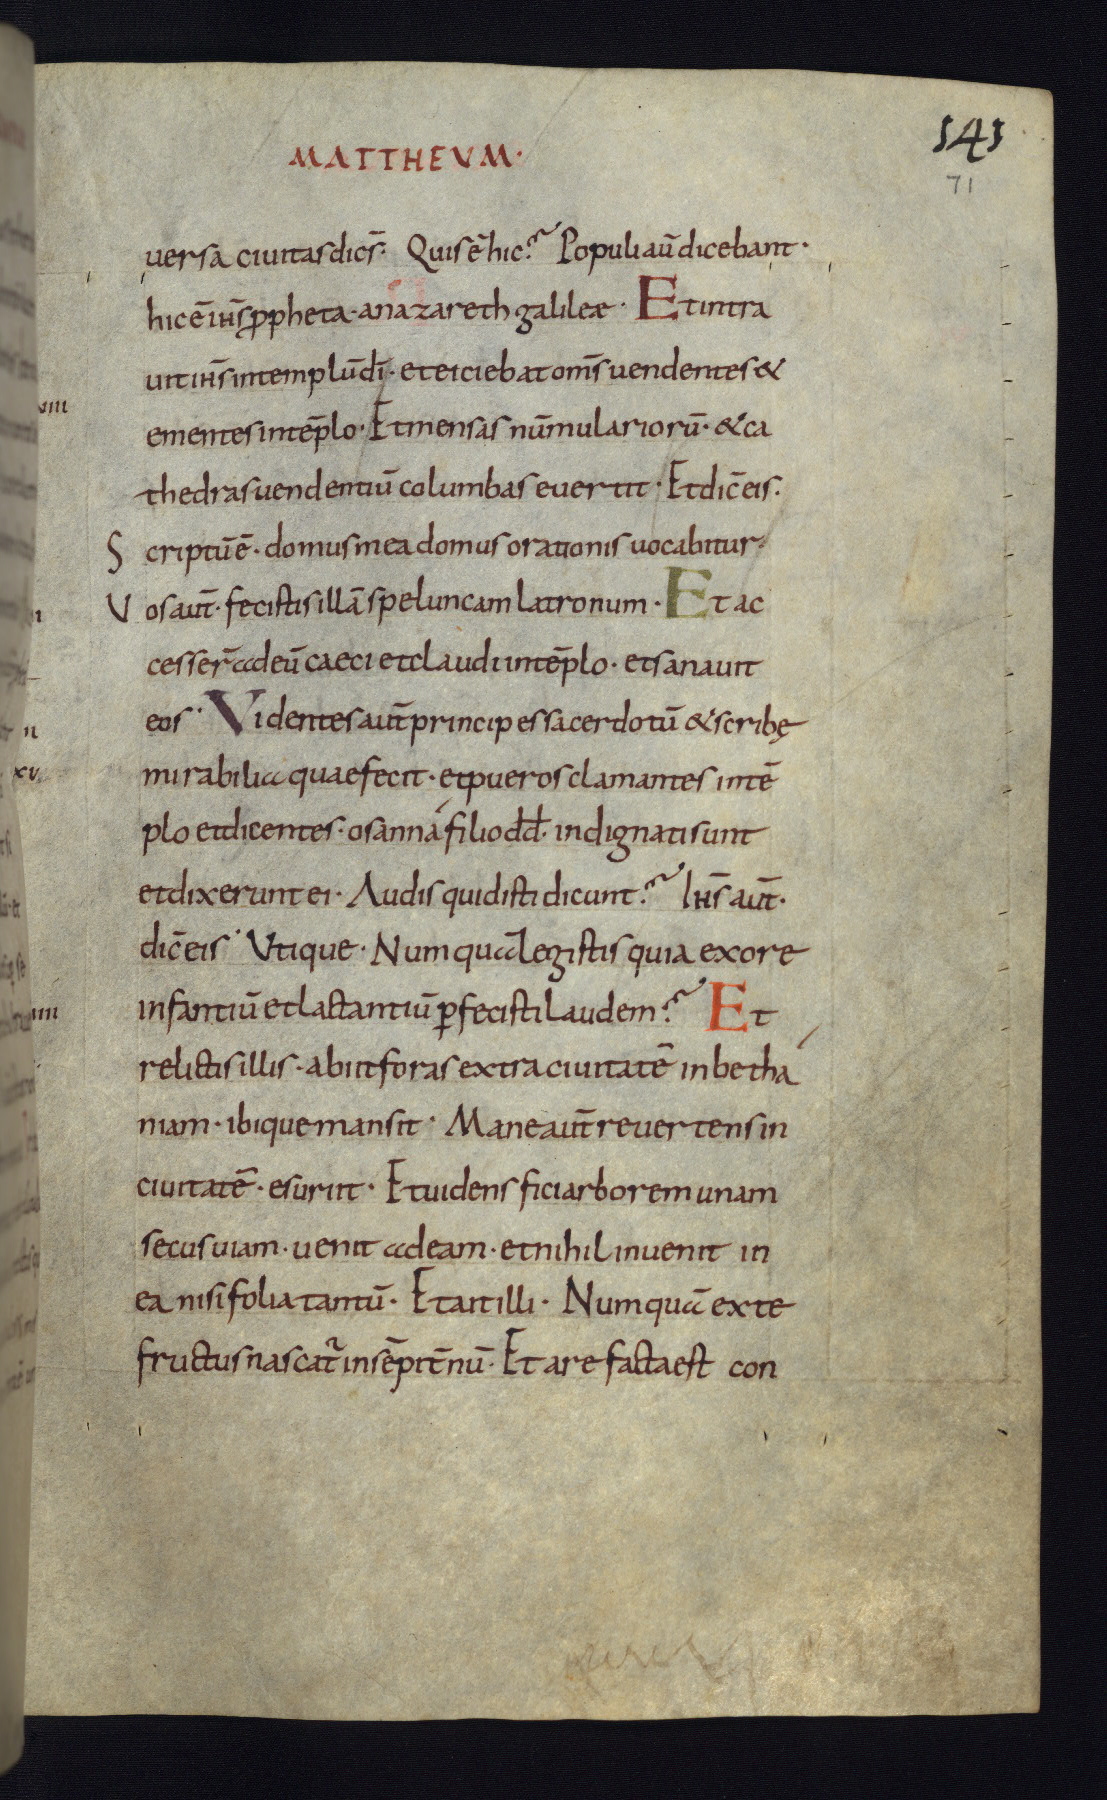 MATTHEUM·
141
71
uersa ciuitas dics̄· Quis ē hic? Populi aū dicebant·
hic ē ih̄s ppheta· a nazareth galileæ· Et intra
uit ih̄s in templū dī· et eiciebat om̄s uendentes &
ementes in tēplo· Et mensas nūmulariorū· & ca
thedras uendentiū columbas euertit· Et dic̄ eis·
Scriptū ē· domus mea domus orationis uocabitur·
Vos aut̄· fecistis illā speluncam latronum· Et ac
cesser̄ ad eū caeci et claudi in tēplo· et sanauit
eos· Videntes aut̄ principes sacerdotū & scribę
mirabilia quae fecit· et pueros clamantes in tē
plo et dicentes· osanna filio dd̄· indignati sunt
et dixerunt ei· Audis quid isti dicunt? Ih̄s aut̄·
dic̄ eis· Vtique· Numquā legistis quia ex ore
infantiū et lactantiū ꝑfecisti laudem? Et
relictis illis· abiit foras extra ciuitatē in betha
niam· ibique mansit· Mane aut̄ reuertens in
ciuitatē· esuriit· Et uidens fici arborem unam
secus uiam· uenit ad eam· et nihil inuenit in
ea nisi folia tantū· Et ait illi· Numquā ex te
fructus nascat̄ in sēpit̄nū· Et arefacta est con